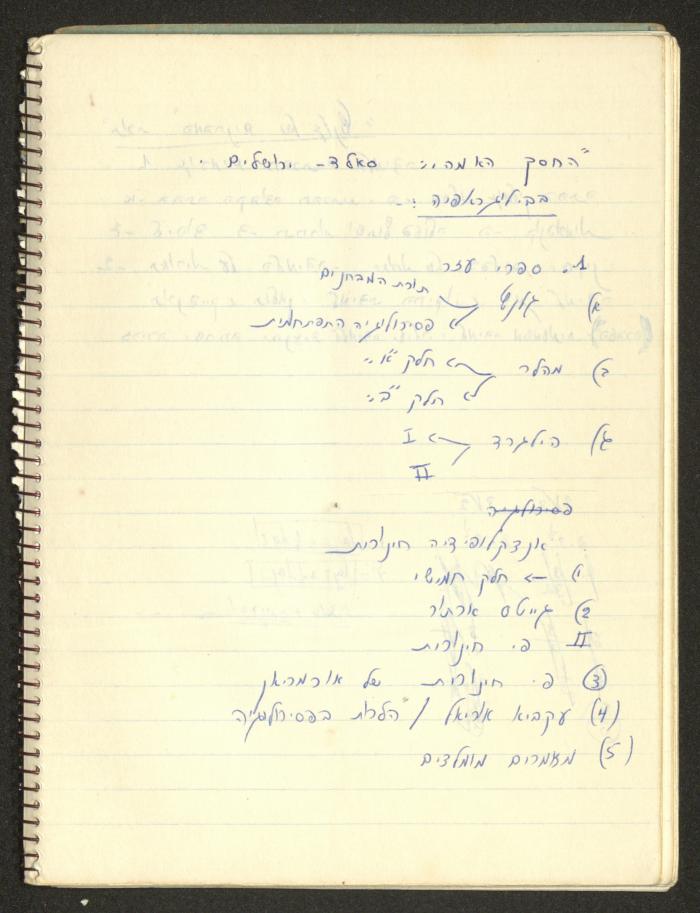 "החסך האמהי" סאלד - ירושלים.
ביבליגראפיה:
1. ספרי עזר
תורת המבחנים
א) גלנץ
פסיכולוגיה התפתחותית
ב) מהלר → חלק "א"
חלק "ב"
ג) הילגרד → I
II
פסיכולוגיה
אנציקלופידיה חינוכית
1) → חלק חמישי
2) גייטס ארתור
II פ. חינוכית
3) פ. חינוכית של אורמריאן
(4) עקביא אוריאל / הלכות בפסיכולוגיה
(5) מאמרים מומלצים